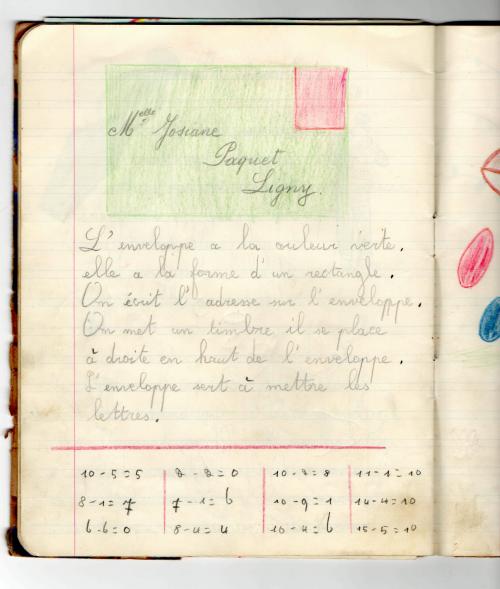 Melle Josiane
Paquet
Ligny.
L'enveloppe a la couleur verte,
elle a la forme d'un rectangle.
On écrit l'adresse sur l'enveloppe.
On met un timbre il se place
à droite en haut de l'enveloppe.
L'enveloppe sert à mettre les
lettres.
10-5=5 2-2=0 10-2=8 11-1=10
8-1=7 7-1=6 10-9=1 14-4=10
6-6=0 8-4=4 10-4=6 15-5=10